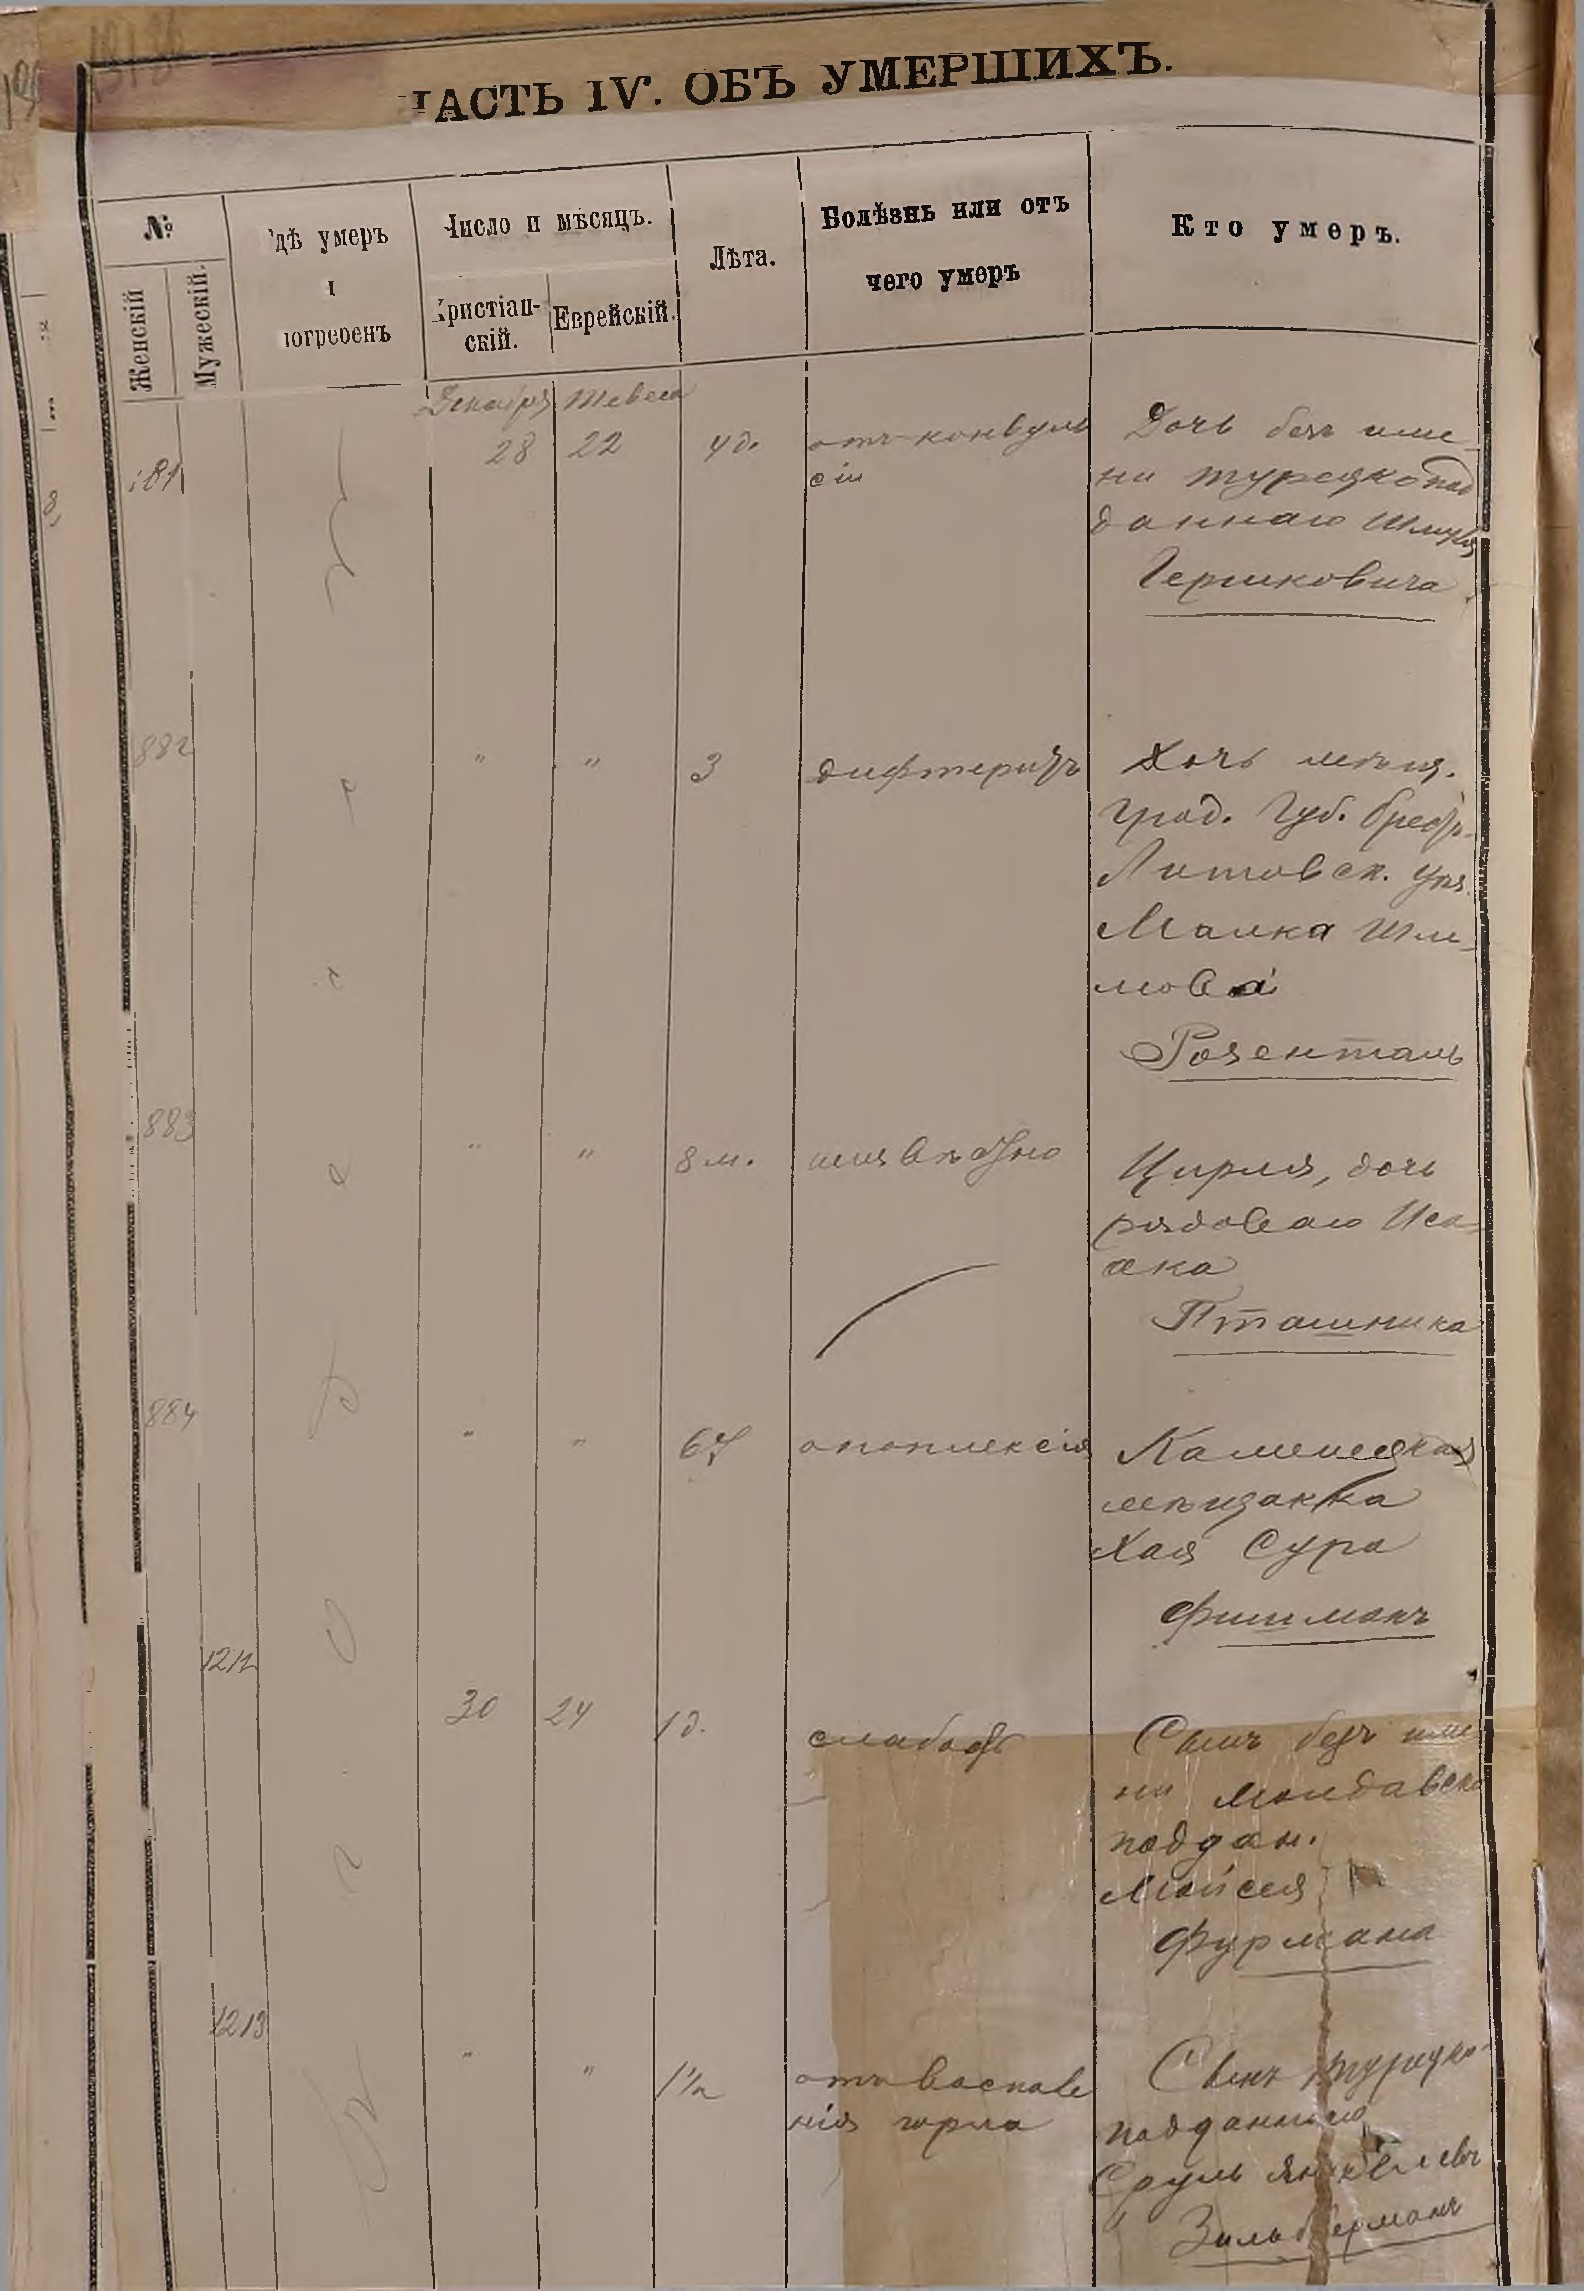 ЧАСТЬ IV. ОБЪ УМЕРШИХЪ.
№
Женскій
Мужескій.
Гдѣ умеръ
и
погребенъ
Число и мѣсяцъ.
Христіан-
скій.
Еврейскій.
Лѣта.
Болѣзнь или отъ
чего умеръ
Кто умеръ.
Декабря Тевеса
881 28 22 4 д. отъ конвуль
сіи
Дочь безъ име
ни турецкопод
даннаго Шмуля
Гершковича
882 " " 3 дифтеритъ
Дочь мѣщ.
Грод. Губ. Брест-
Литовск. уѣз.
Малка Шли-
мова
Розенталь
883 " " 8 м.
Цирля, дочь
рядоваго Иса-
ака
Пташника
884 " " 67 апоплексія
Каменецкая
мѣщанка
Хая Сура
Фишманъ
1212 30 24 1 д. слабость
Сынъ безъ име
ни молдавско
поддан.
Мойсея
Фурмана
1213 " " 1½ отъ воспале
нія горла
Сынъ турецко-
подданнаго
Сруль Янкелевъ
Зильберманъ